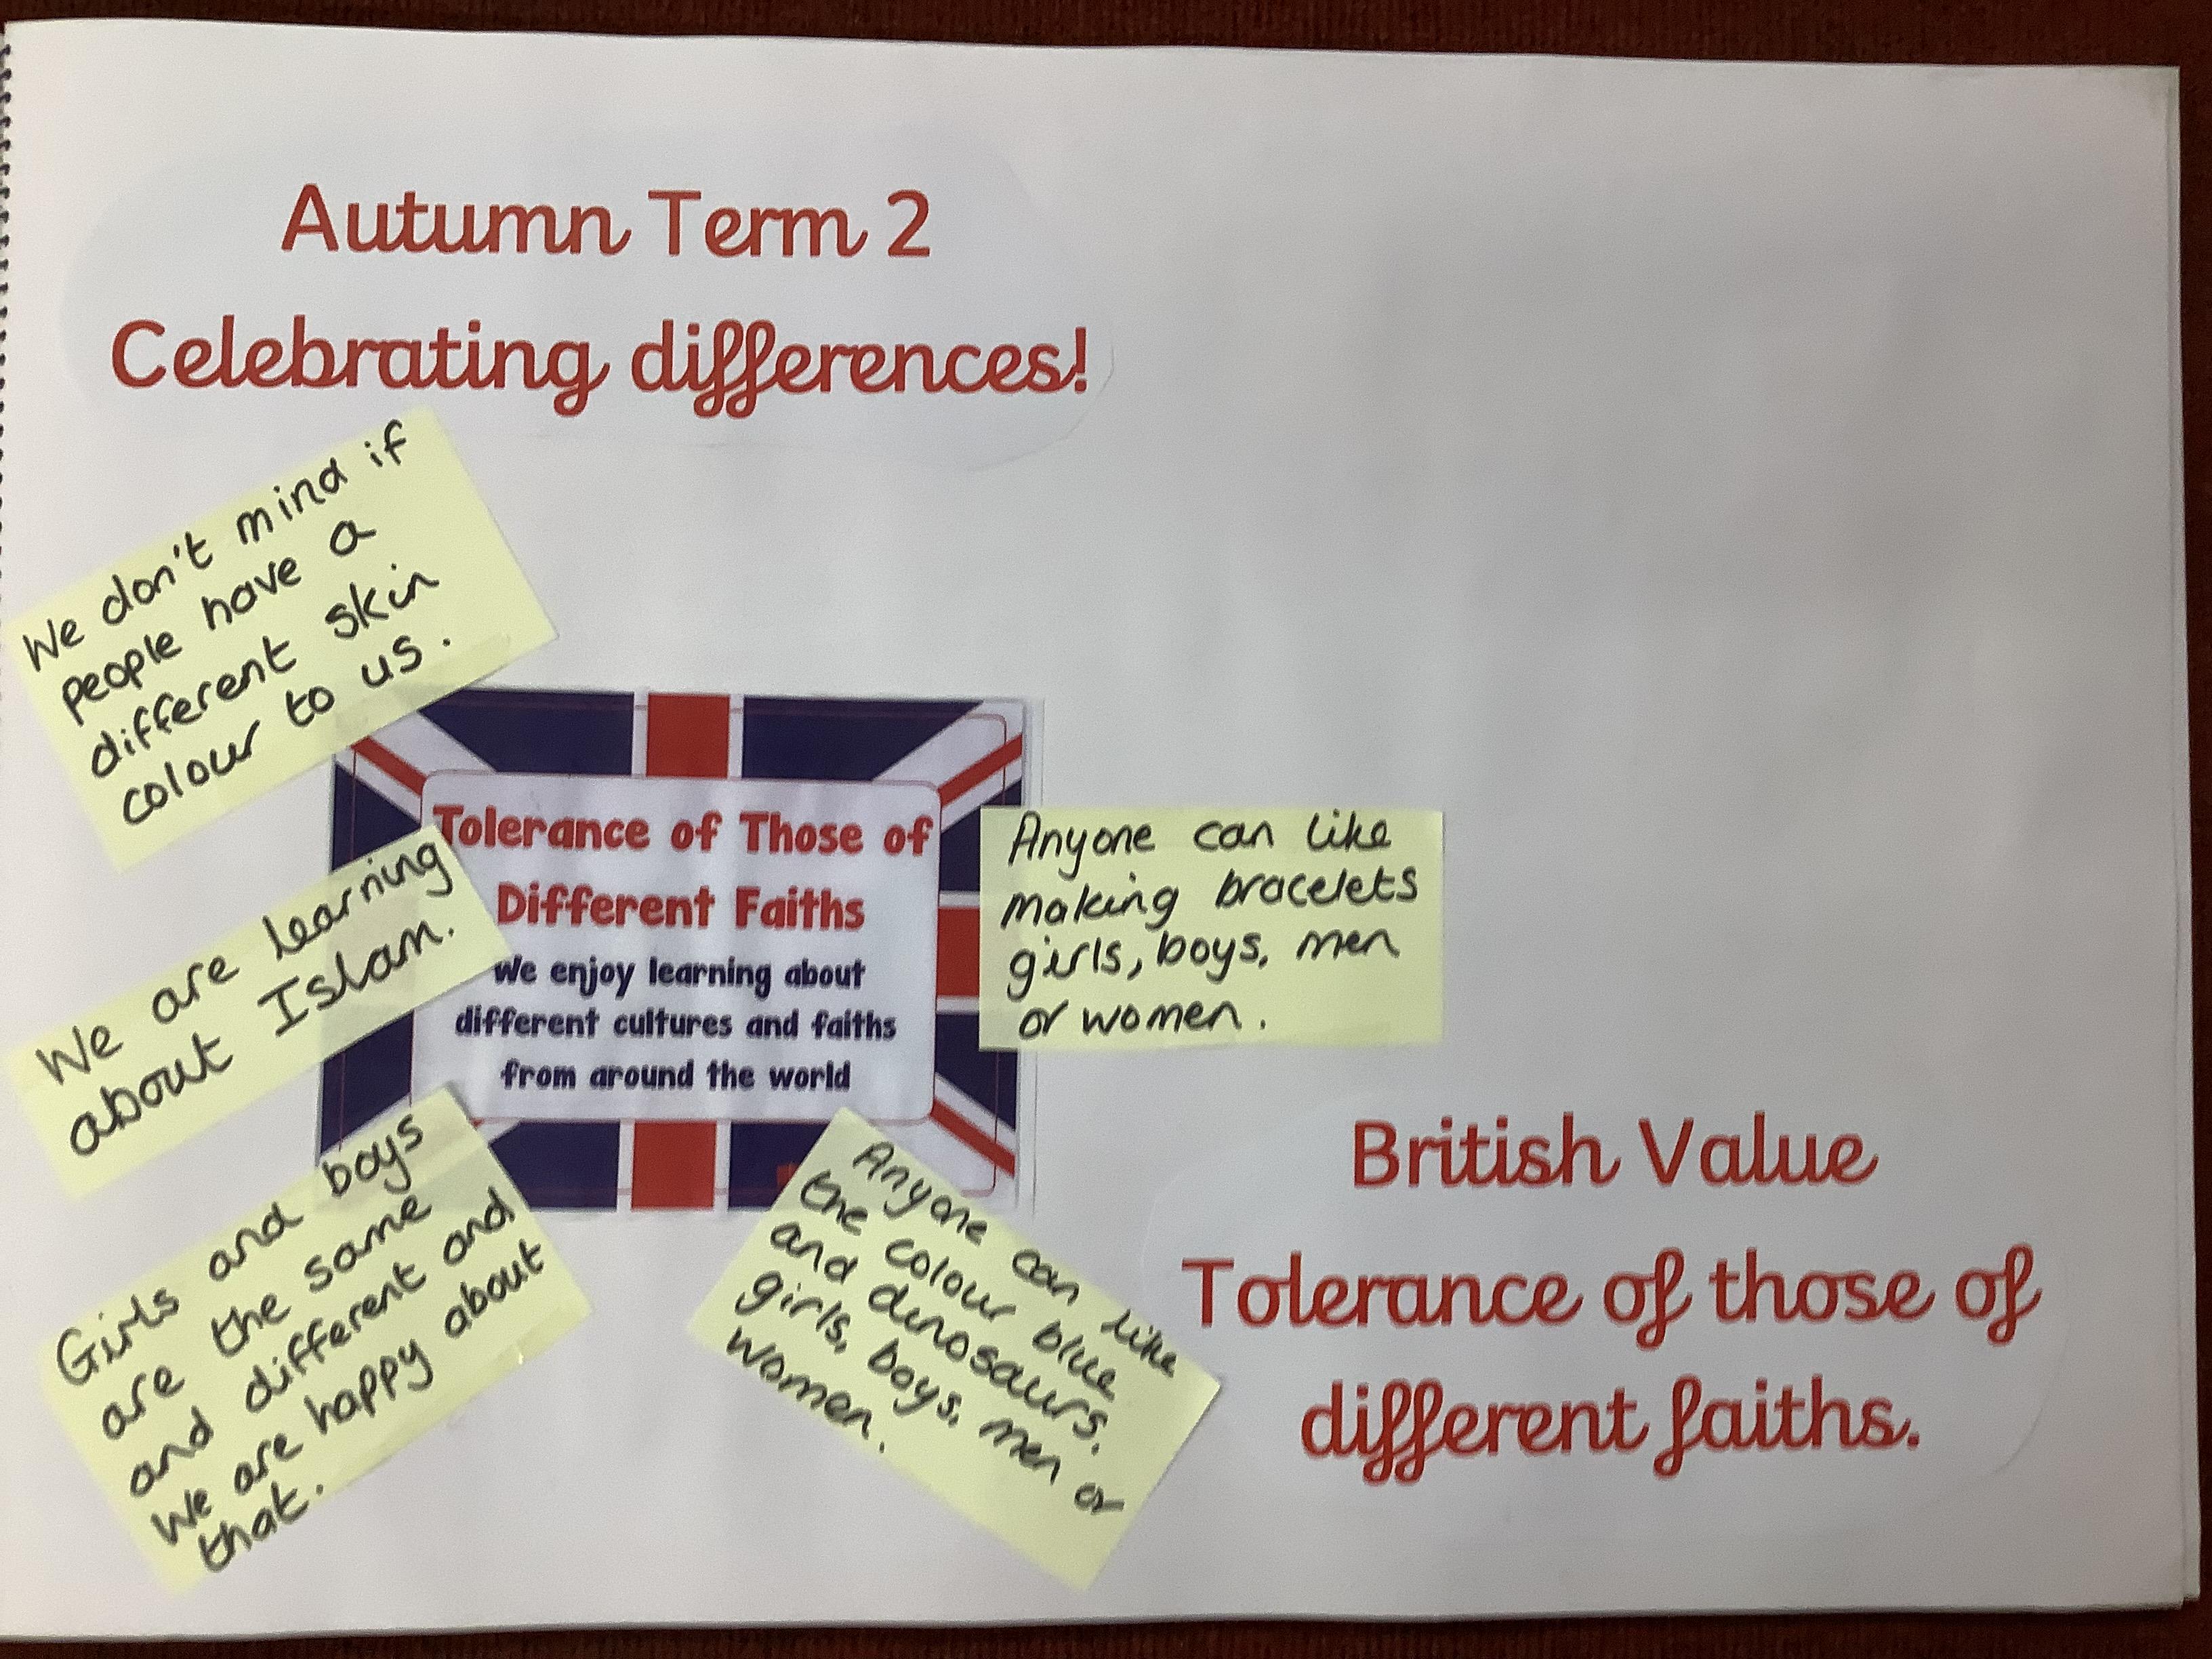 Autumn Term 2
Celebrating differences!
We don't mind if
people have a
different skin
colour to us.
Tolerance of Those of
Different Faiths
We enjoy learning about
different cultures and faiths
from around the world
We are learning
about Islam.
Anyone can like
making bracelets
girls, boys, men
or women.
Girls and boys
are the same
and different and
we are happy about
that.
Anyone can like
the colour blue
and dinosaurs.
girls, boys, men or
women.
British Value
Tolerance of those of
different faiths.